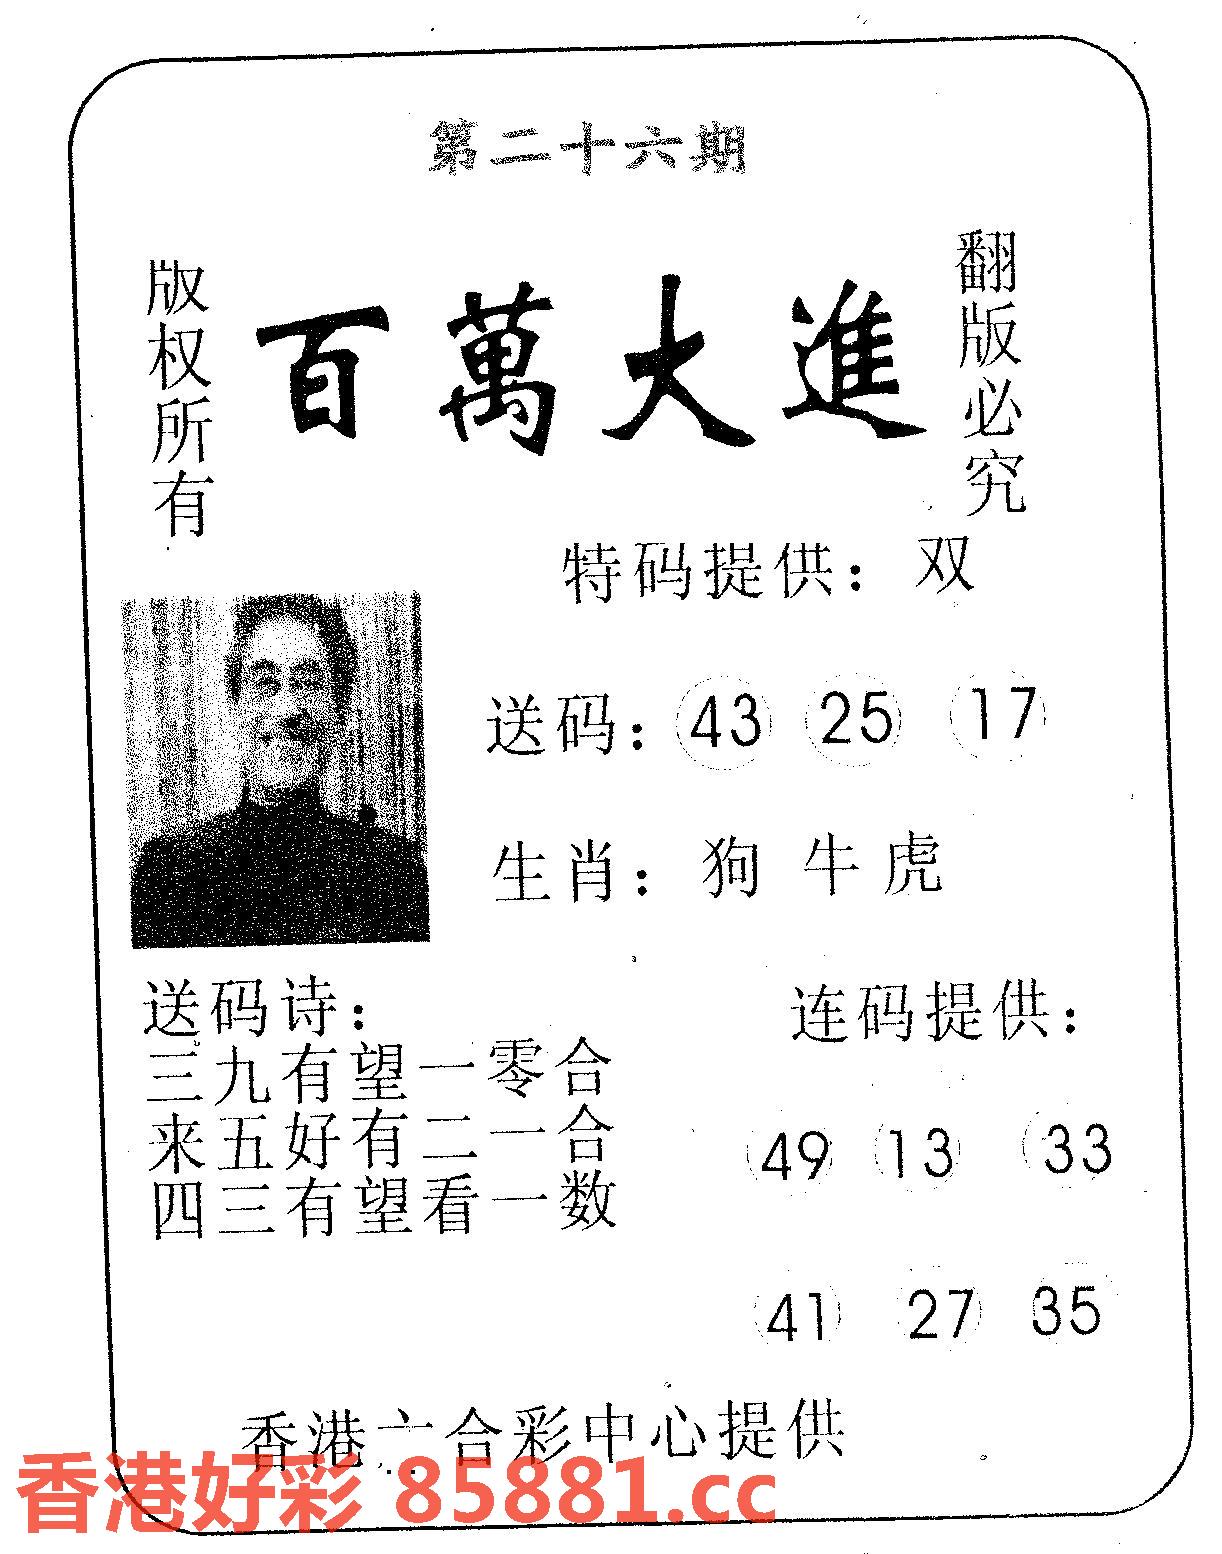 第二十六期
版权所有
百萬大進
翻版必究
特码提供：双
送码：43 25 17
生肖：狗 牛 虎
送码诗：
三九有望一零合
来五好有二一合
四三有望看一数
连码提供：
49 13 33
41 27 35
香港六合彩中心提供
香港好彩 85881.cc